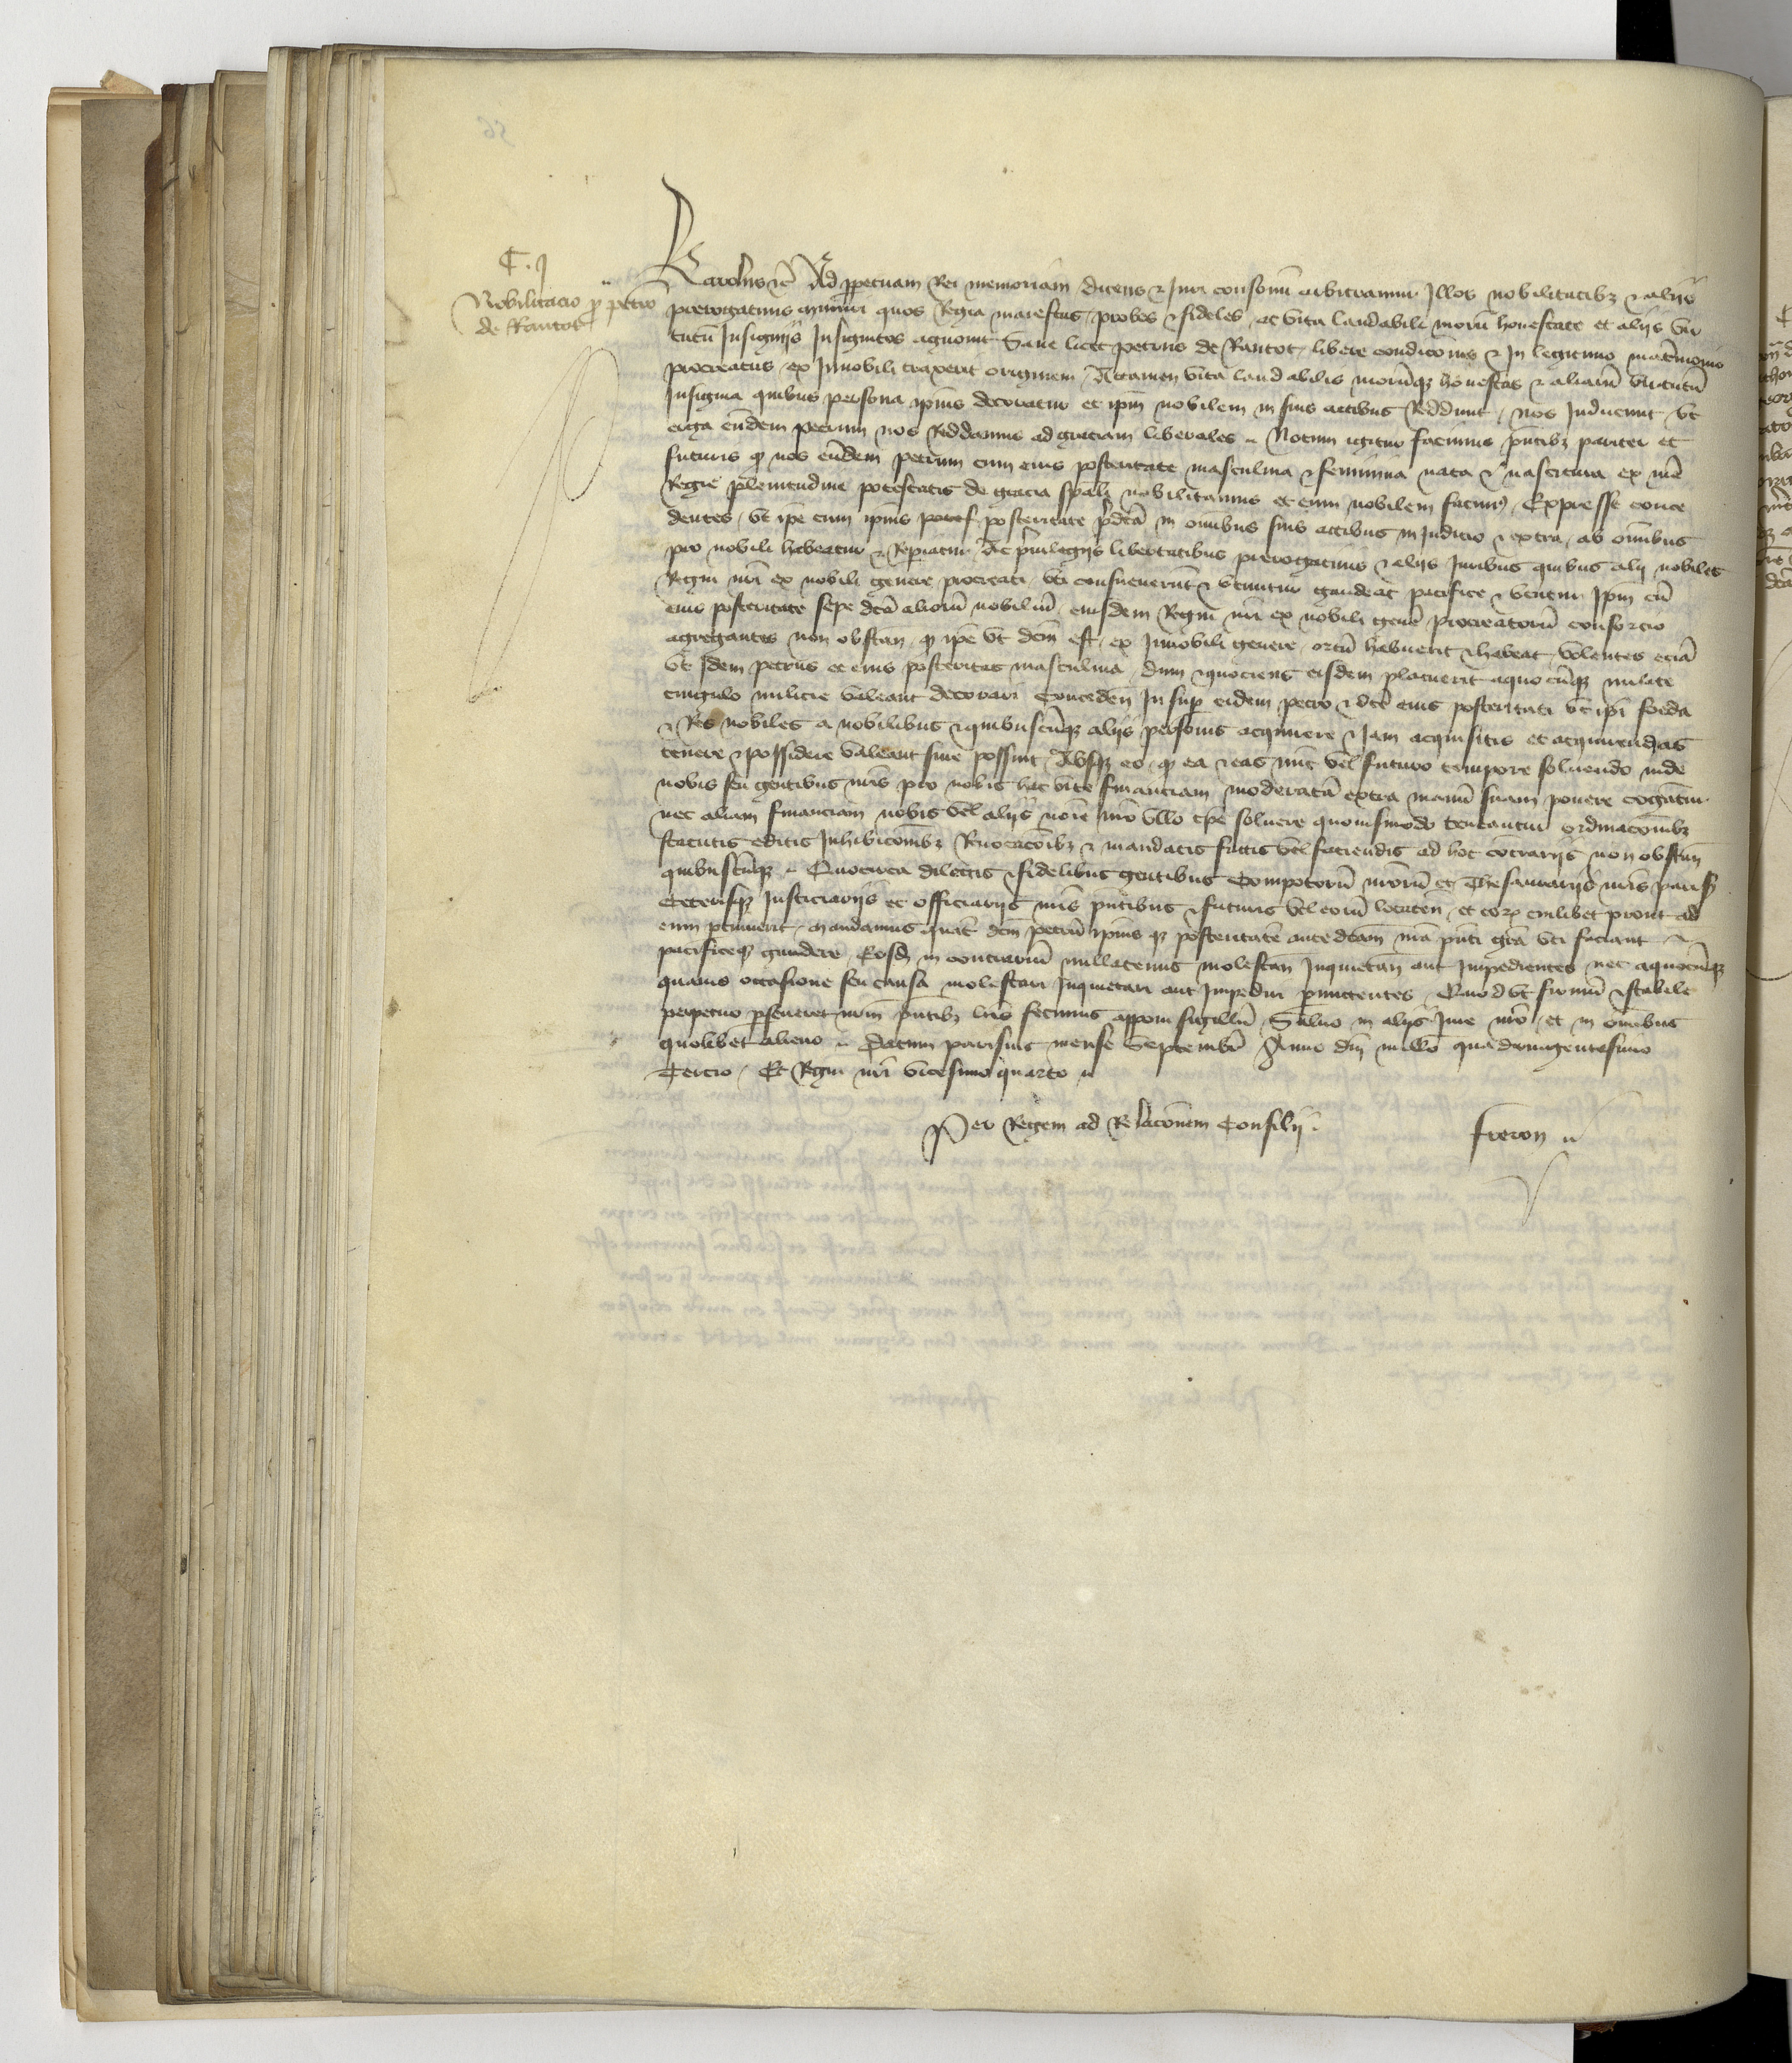 C. I
Nobilitacio pro petro
de Rantot
Karolus etc Ad perpetuam Rei memoriam dicens et Juri consonu arbitramur Illos nobilitatibz et aliis
prerogativis muniri quos Regia maiestas probos et fideles ac vita laudabili moru honestate et aliis vir
tutu Insigniis Insignitos agnovit Sane licet petrus de Rantot libere condicionis et In legitimo matrimonio
procreatus ex Innobili traxerit originem Attamen vita laudabilis morumqz honestas et aliaru virtutu
Insignia quibus persona ipius decoratur et ipm nobilem in suis actibus Reddunt nos Inducunt vt
erga eundem petrum nos Reddamus ad graciam liberales Notum igitur facimus pntibz pariter et
futuris qd nos eundem petrum cum eius posteritate masculina et feminina nata et nascitura ex nre
Regie plenitudine potestatis de gracia spali nobilitamus et eum nobilem facimus Expresse conce
dentes vt ipe cum ipius posteritate pdca in omibus suis actibus in Judicio et extra ab omibus
pro nobili habeatur et Repiatur Ac privilegiis libertatibus prerogativis et aliis Juribus quibus alii nobiles
Regni nri ex nobili genere procreati vti consueverunt et vtuntur gaudeat pacifice et vtatur Ipm cu
eius posteritate sepe dca alioru nobiliu eiusdem Regni nri ex nobili gene procreatoru consorcio
agregantes non obstan qd ipe vt dcm est ex Innobili genere ortu habuerit et habeat volentes ecia
vt Idem petrus et eius posteritas masculina dum et quociens eisdem placuerit a quocuqz milite
cingulo milicie valeant decorari Conceden Insuper eidem petro et dce eius posteritati vt ipi foeda
et Res nobiles a nobilibus et quibuscuqz aliis personis acquirere et Jam acquisitis et acquirendas
tenere et possidere valeant sive possint Absqz eo qd ea et eas nuc vel futuro tempore solvendo inde
nobis seu gentibus nris pro nobis hac vice financiam moderata extra manu suam ponere cogatur
nec aliam financiam nobis vel aliis noie nro vllo tpe solvere quomodo teneantur ordinacoibz
statutis editis Inhibicoibz Revocacoibz et mandatis factis vel faciendis ad hoc contrariis non obstan
quibuscuqz Quocirca dilectis et fidelibus gentibus Compotoru nroru et Thesaurariis nris parisius
Ceterisqz Justiciariis et officiariis nris pntibus et futuris vel eoru locaten et eor cuilibet prout ad
eum ptinuerit mandamus quat dcm petru ipius qz posteritate ante dcam nra pnti gra vti faciant et
pacificeqz gaudere Eosdem in contrariu nullatenus molestan Inquietan aut Impedientes nec a quocuqz
quavis occasione seu causa molestari Inquietari aut Impediri pmittentes Quod vt firmu et stabile
perpetuo perseveret nrm pntibz lris fecimus apponi sigillu Salvo in aliis Jure nro et in omibus
quolibet alieno Datum parisius mense Septembr Anno dni millo quadringentesimo
Tercio Et Regni nri vicesimo quarto
Per Regem ad Relaconem Consilii
freron